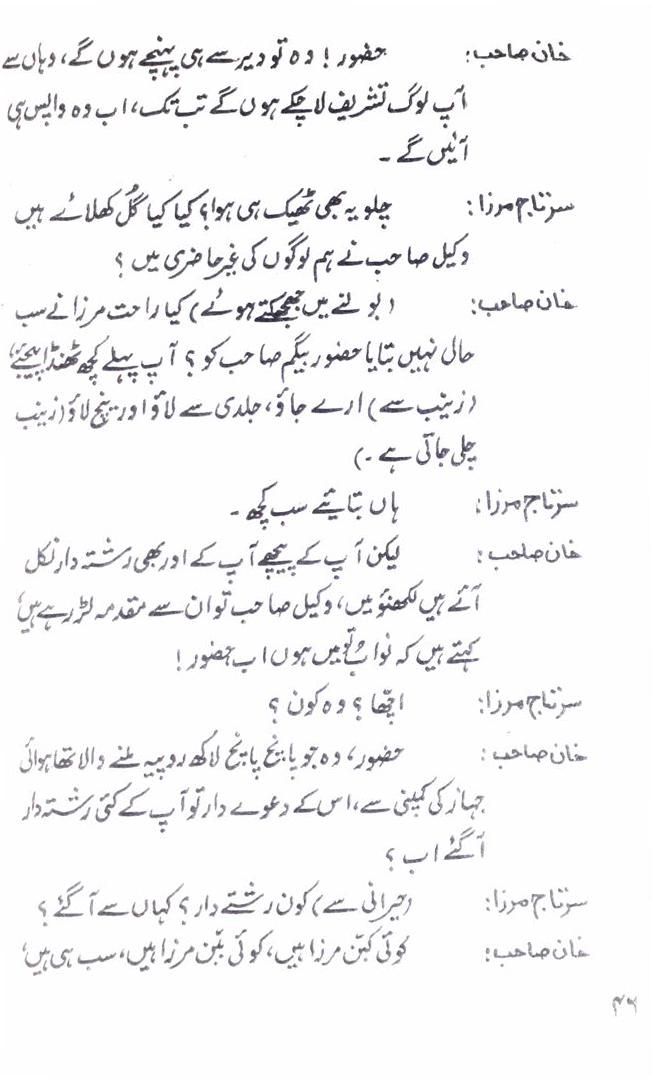 خان صاحب: حضور! وہ تو دیر سے ہی پہنچے ہوں گے، وہاں سے
آپ لوگ تشریف لا چکے ہوں گے تب تک، اب وہ واپس ہی
آئیں گے ۔
سرتاج مرزا: چلو یہ بھی ٹھیک ہی ہوا؟ کیا کیا گُل کھلائے ہیں
وکیل صاحب نے ہم لوگوں کی غیر حاضری میں ؟
خان صاحب: (بولنے میں جھجھکتے ہوئے) کیا راحت مرزا نے سب
حال نہیں بتایا حضور بیگم صاحب کو ؟ آپ پہلے کچھ ٹھنڈا پیجئے،
(زینب سے) ارے جاؤ، جلدی سے لاؤ اورینج لاؤ (زینب
چلی جاتی ہے ۔)
سرتاج مرزا: ہاں بتائیے سب کچھ ۔
خان صاحب: لیکن آپ کے پیچھے آپ کے اور بھی رشتہ دار نکل
آئے ہیں لکھنؤ میں، وکیل صاحب تو ان سے مقدمہ لڑ رہے ہیں،
کہتے ہیں کہ نواب تو میں ہوں اب حضور!
سرتاج مرزا: اچھا ؟ وہ کون ؟
خان صاحب: حضور، وہ جو پانچ پانچ لاکھ روپیہ ملنے والا تھا ہوائی
جہاز کی کمپنی سے، اس کے دعوے دار تو آپ کے کئی رشتہ دار
آگئے اب ؟
سرتاج مرزا: (حیرانی سے) کون رشتے دار ؟ کہاں سے آگئے ؟
خان صاحب: کوئی کبّن مرزا ہیں، کوئی ببّن مرزا ہیں، سب ہی ہیں،
۴۶